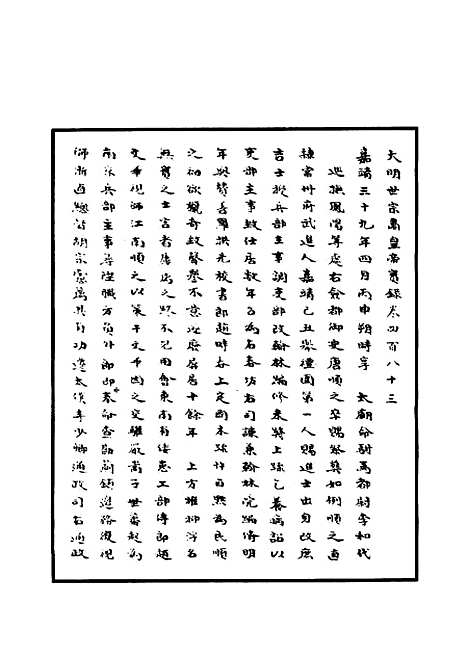 大明世宗肅皇帝實錄卷四百八十三
嘉靖三十九年四月丙申朔時享　太廟命駙馬都尉李和代
巡撫鳳陽等處右僉都御史唐順之卒賜祭葬如例順之直
隸常州府武進人嘉靖己丑舉禮闈第一人賜進士出身改庶
吉士授兵部主事調吏部改翰林編修未幾上疏乞養病詔以
吏部主事致仕居數年召為右春坊右司諫兼翰林院編脩明
年與贊善羅洪先校書郎趙時春上定國本疏詐自黜為民順
之初欲獵奇致聲譽不意遂廢屏居十餘年　上方摧抑浮名
無實之士言者屢薦之終不見用會東南有倭患工部侍郎趙
文華視師江南順之以策干文華因之交驩嚴嵩子世蕃起為
南京兵部主事尋陞職方員外郎郎中奉命查勘薊鎮邊務復視
師浙直總督胡宗憲薦其有功遷太僕寺少卿通政司右通政